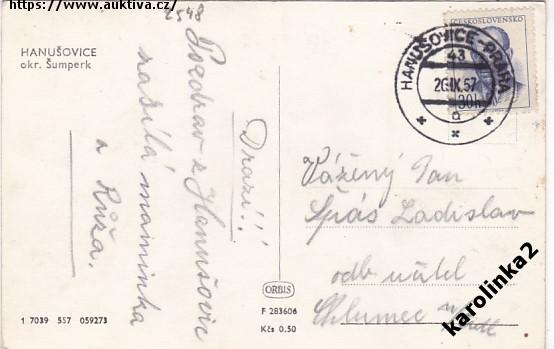 https://www.auktiva.cz/
2548
HANUŠOVICE
okr. Šumperk
Drazí!!
Pozdrav z Hanušovic
zasílá maminka
a Růža.
ČESKOSLOVENSKO
30h
HANUŠOVICE-PRAHA
43
26.IX.57
a
Vážený Pan
Spiás Ladislav
odb učitel
Chlumec
ORBIS
F 283606
Kčs 0.50
1 7039 557 059273
karolinka2